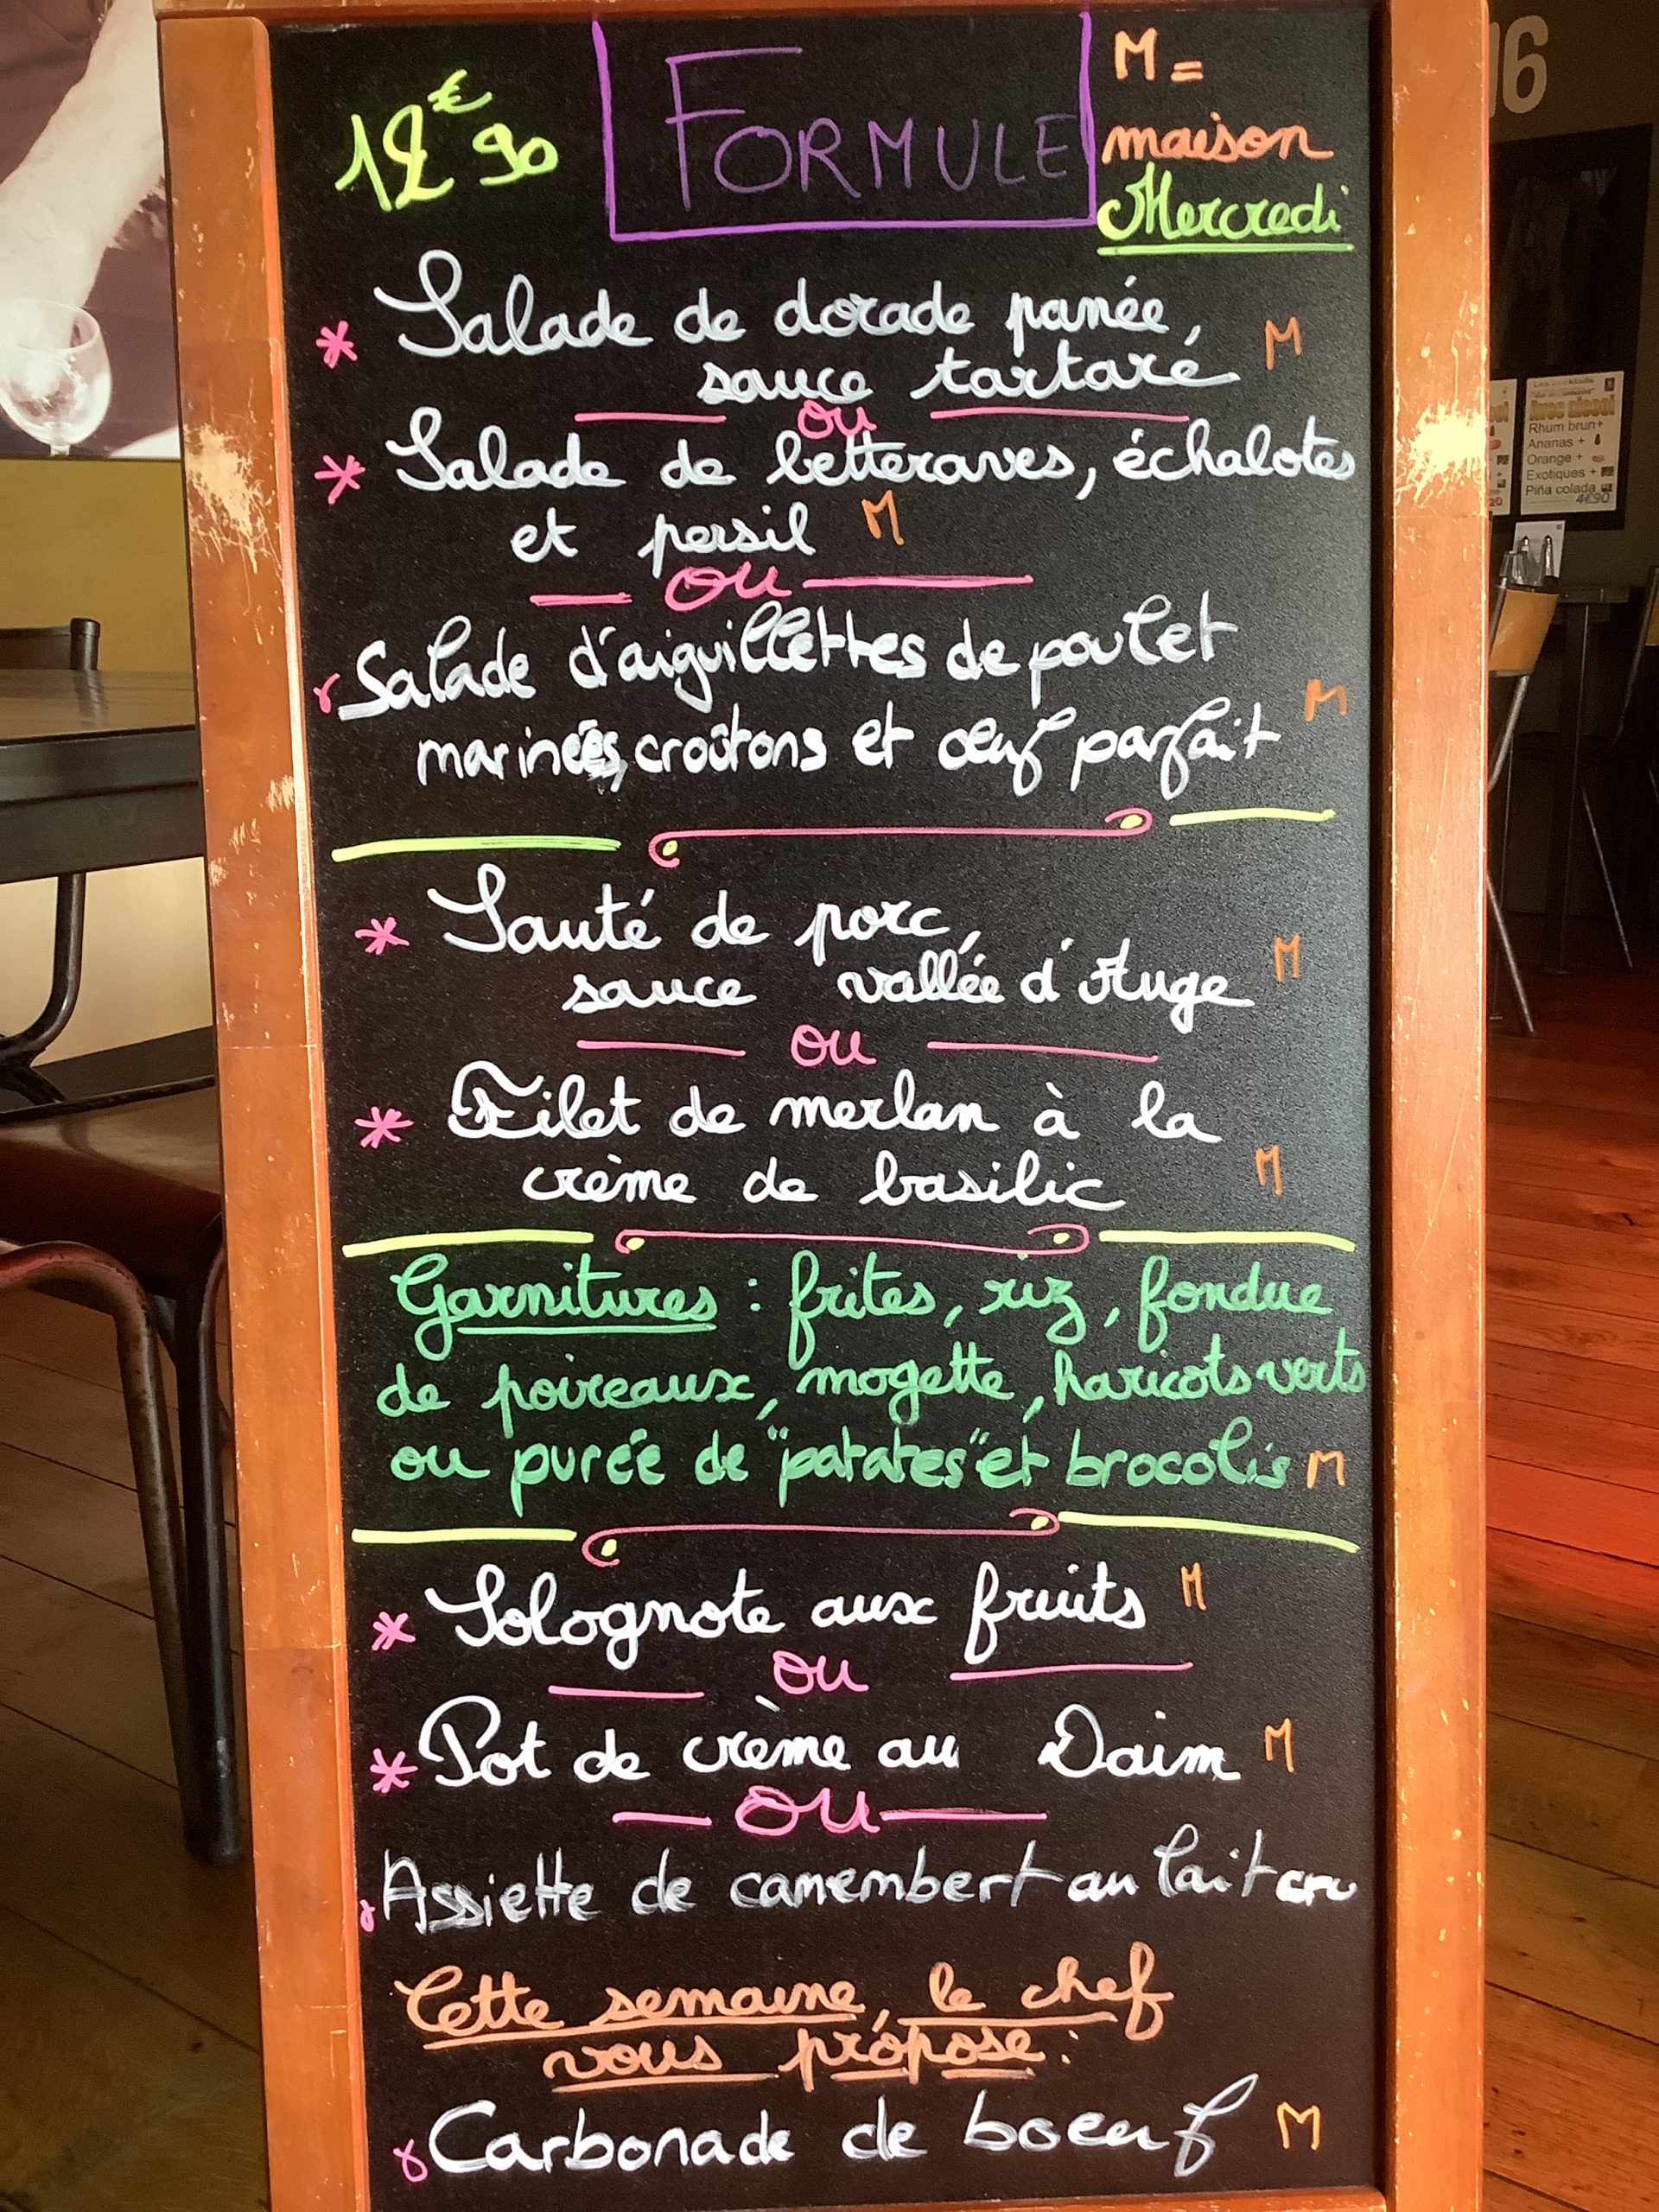 12€90
FORMULE
M =
maison
Mercredi
* Salade de dorade panée,
sauce tartare M
ou
* Salade de betteraves, échalotes
et persil M
ou
* Salade d'aiguillettes de poulet
marinées, croûtons et œuf parfait M
* Sauté de porc,
sauce vallée d'Auge M
ou
* Filet de merlan à la
crème de basilic M
Garnitures : frites, riz, fondue
de poireaux, mogette, haricots verts
ou purée de "patates" et brocolis M
* Solognote aux fruits M
ou
* Pot de crème au Daim M
ou
* Assiette de camembert au lait cru
Cette semaine, le chef
vous propose :
* Carbonade de boeuf M
16
Avec alcool
Rhum brun+
Ananas +
Orange +
Exotiques +
Piña colada
4€90